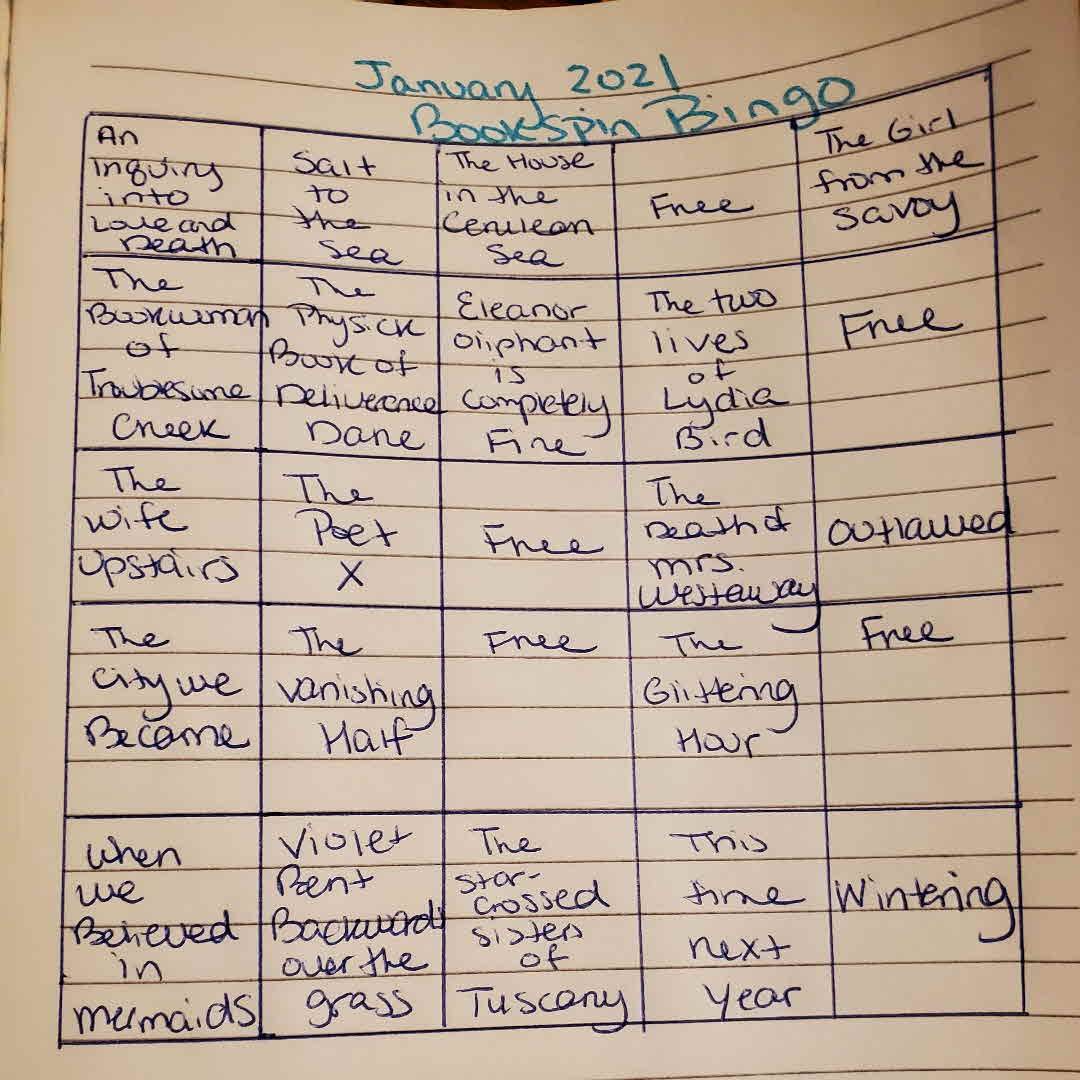 January 2021
Bookspin Bingo
An
inquiry
into
Love and
Death
Salt
to
the
Sea
The House
in the
Cerulean
Sea
Free
The Girl
from the
Savoy
The
Bookwoman
of
Troublesome
Creek
The
Physick
Book of
Deliverance
Dane
Eleanor
Oliphant
is
Completely
Fine
The two
lives
of
Lydia
Bird
Free
The
Wife
Upstairs
The
Poet
X
Free
The
Death of
mrs.
Westaway
Outlawed
The
City we
Became
The
Vanishing
Half
Free
The
Glittering
Hour
Free
When
we
Believed
in
mermaids
Violet
Bent
Backwards
over the
grass
The
star-
crossed
sisters
of
Tuscany
This
time
next
Year
Wintering